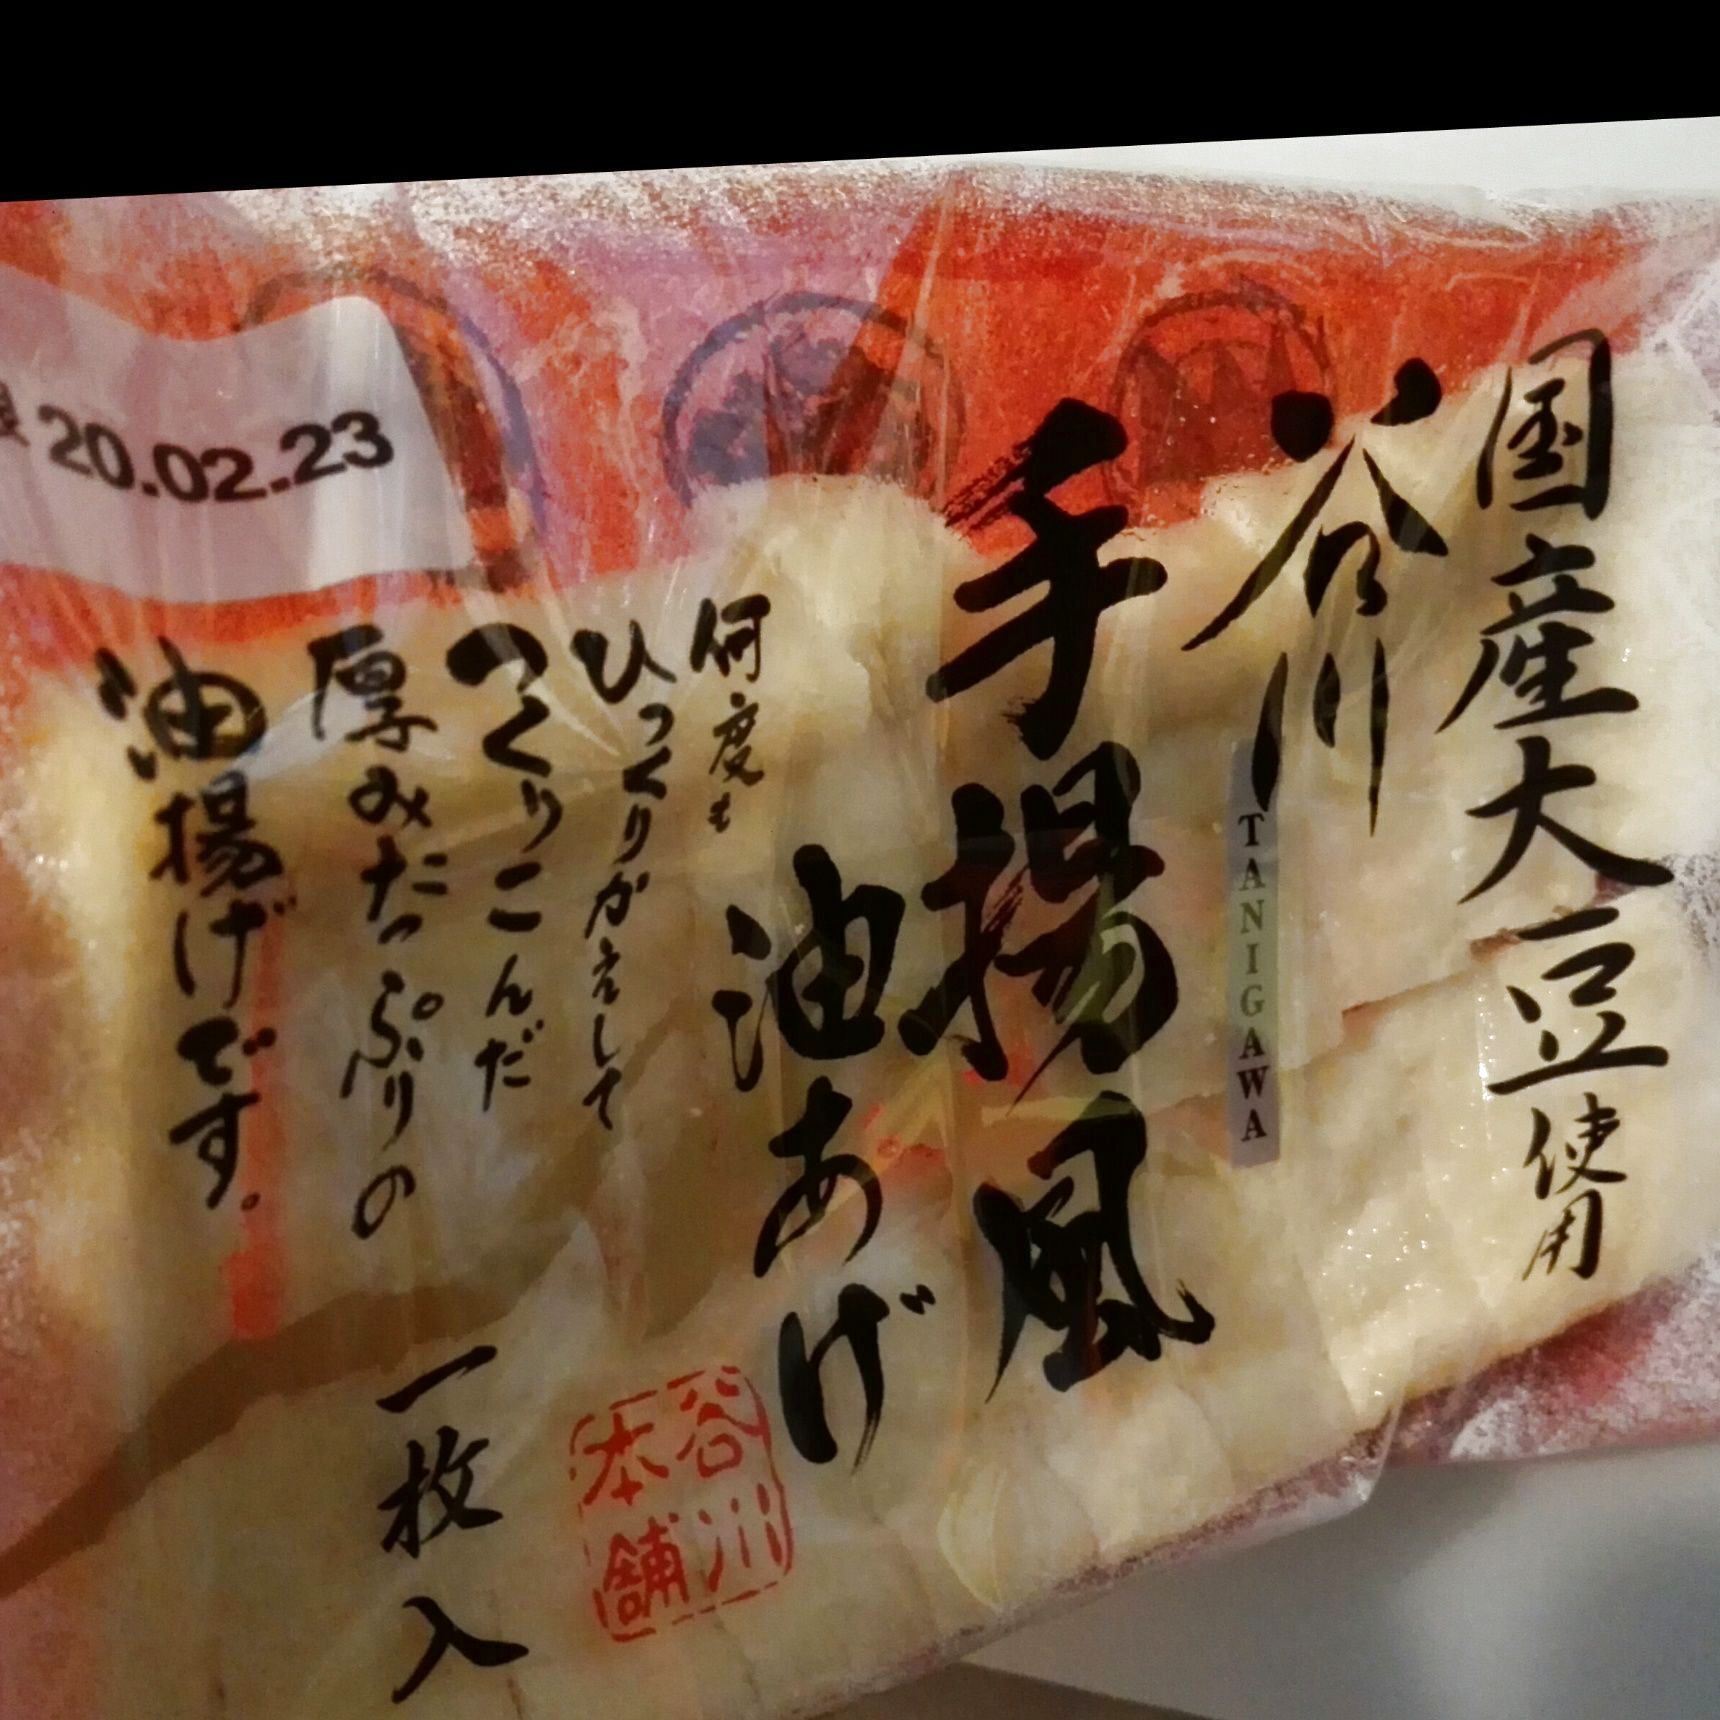 国産大豆使用
谷川
TANIGAWA
手揚風
油あげ
何度も
ひっくりかえして
つくりこんだ
厚みたっぷりの
油揚げです。
一枚入
谷川
本舗
限 20.02.23